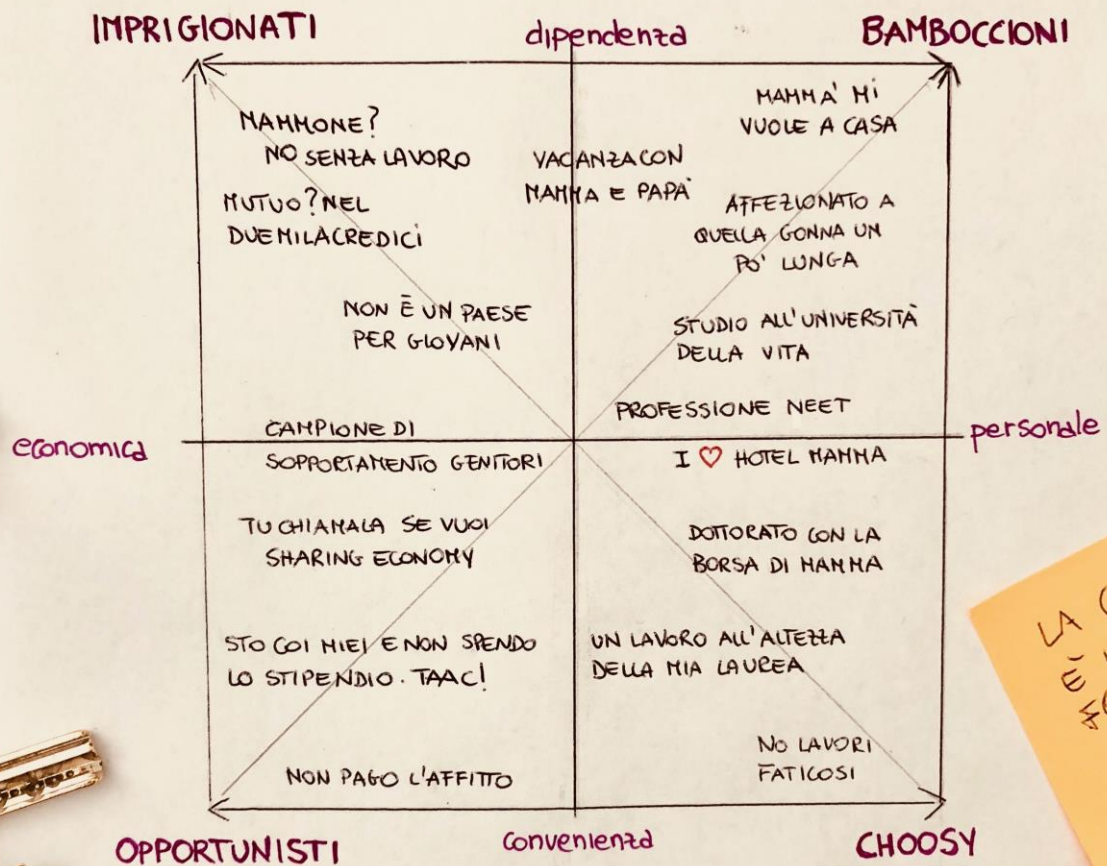 IMPRIGIONATI
dipendenza
BAMBOCCIONI
MAMMONE?
NO SENZA LAVORO
MUTUO? NEL
DUEMILACREDICI
NON È UN PAESE
PER GIOVANI
VACANZA CON
MAMMA E PAPÀ
MAMMA' MI
VUOLE A CASA
AFFEZIONATO A
QUELLA GONNA UN
PO' LUNGA
STUDIO ALL'UNIVERSITÀ
DELLA VITA
PROFESSIONE NEET
economica
personale
CAMPIONE DI
SOPPORTAMENTO GENITORI
TU CHIAMALA SE VUOI
SHARING ECONOMY
STO COI MIEI E NON SPENDO
LO STIPENDIO. TAAC!
NON PAGO L'AFFITTO
I ♡ HOTEL MAMMA
DOTTORATO CON LA
BORSA DI MAMMA
UN LAVORO ALL'ALTEZZA
DELLA MIA LAUREA
NO LAVORI
FATICOSI
OPPORTUNISTI
convenienza
CHOOSY
LA